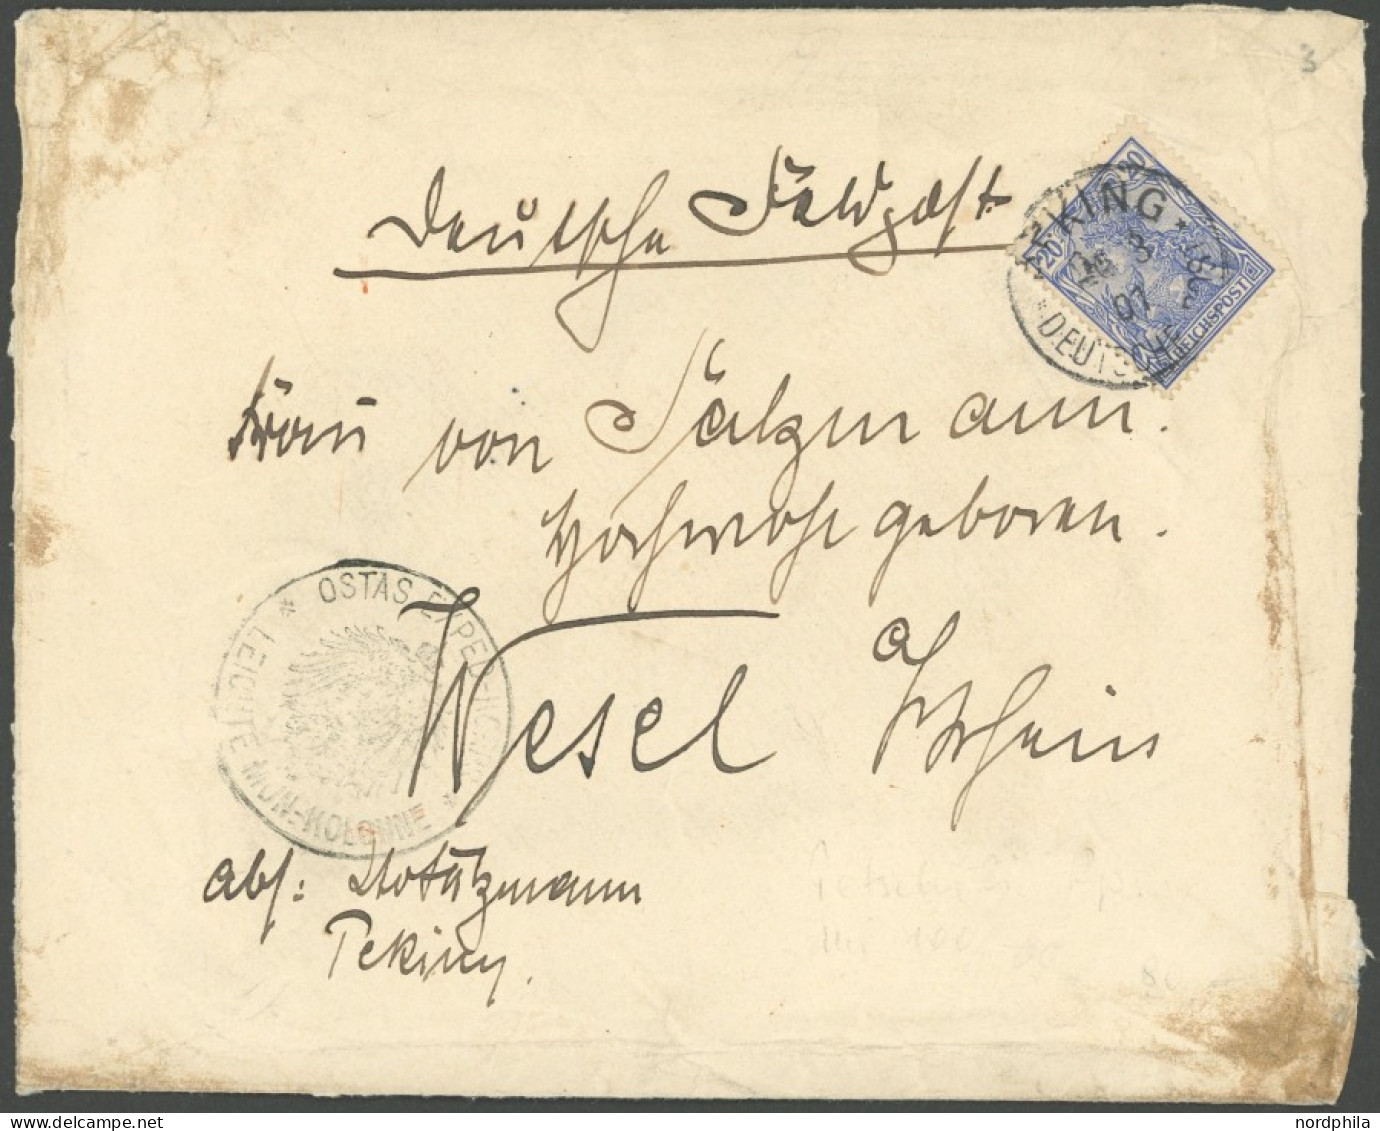 3
Deutsche Feldpost
20 20
REICHSPOST
PEKING
3
01
DEUTSCHE
Frau von Salzmann.
Hochwohlgeboren.
Wesel a/Rhein
* OSTAS. EXPED.
LEICHTE MUN-KOLONNE *
abs:
Peking.
100
nordphila